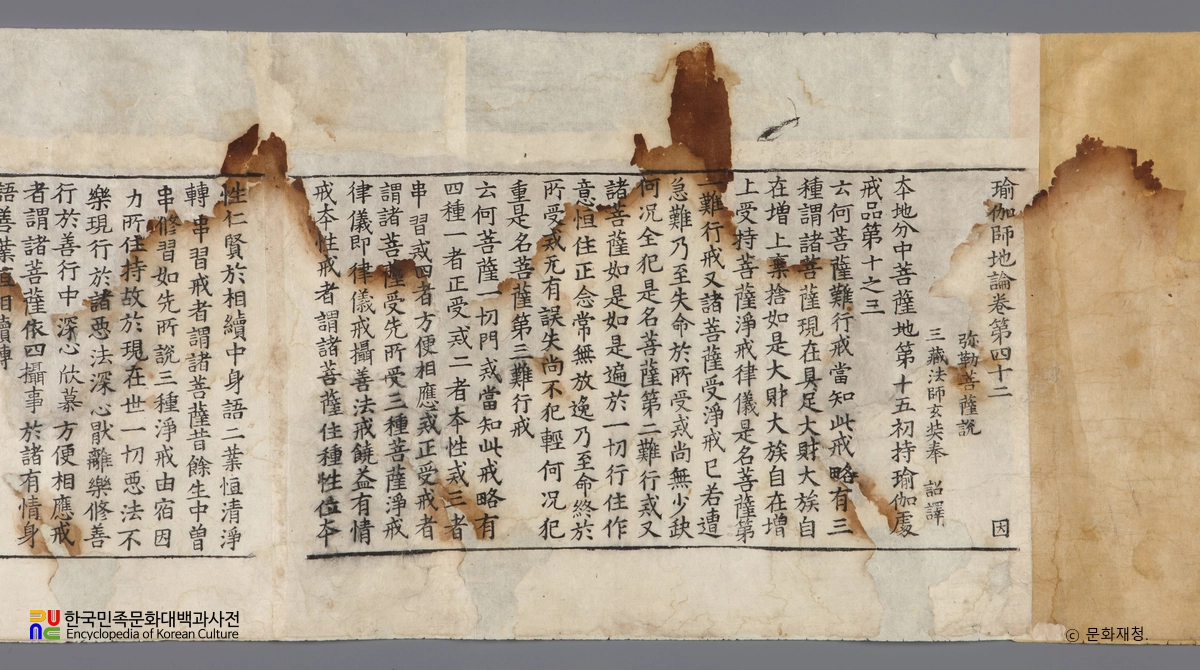 瑜伽師地論卷第四十二 因
弥勒菩薩說
三藏法師玄奘奉 詔譯
本地分中菩薩地第十五初持瑜伽處
戒品第十之三
云何菩薩難行戒當知此戒略有三
種謂諸菩薩現在具足大財大族自
在增上棄捨如是大財大族自在增
上受持菩薩淨戒律儀是名菩薩第
難行戒又諸菩薩受淨戒已若遭
急難乃至失命於所受戒尚無少缺
何况全犯是名菩薩第二難行戒又
諸菩薩如是如是遍於一切行住作
意恒住正念常無放逸乃至命終於
所受戒无有誤失尚不犯輕何况犯
重是名菩薩第三難行戒
云何菩薩一切門戒當知此戒略有
四種一者正受戒二者本性戒三者
串習戒四者方便相應戒正受戒者
謂諸菩薩受先所受三種菩薩淨戒
律儀即律儀戒攝善法戒饒益有情
戒本性戒者謂諸菩薩住種性位本
性仁賢於相續中身語二業恒清淨
轉串習戒者謂諸菩薩昔餘生中曽
串修習如先所說三種淨戒由宿因
力所住持故於現在世一切惡法不
樂現行於諸惡法深心猒離樂修善
行於善行中深心欣慕方便相應戒
者謂諸菩薩依四攝事於諸有情身
語善業恒相續轉
한국민족문화대백과사전
Encyclopedia of Korean Culture
© 문화재청.